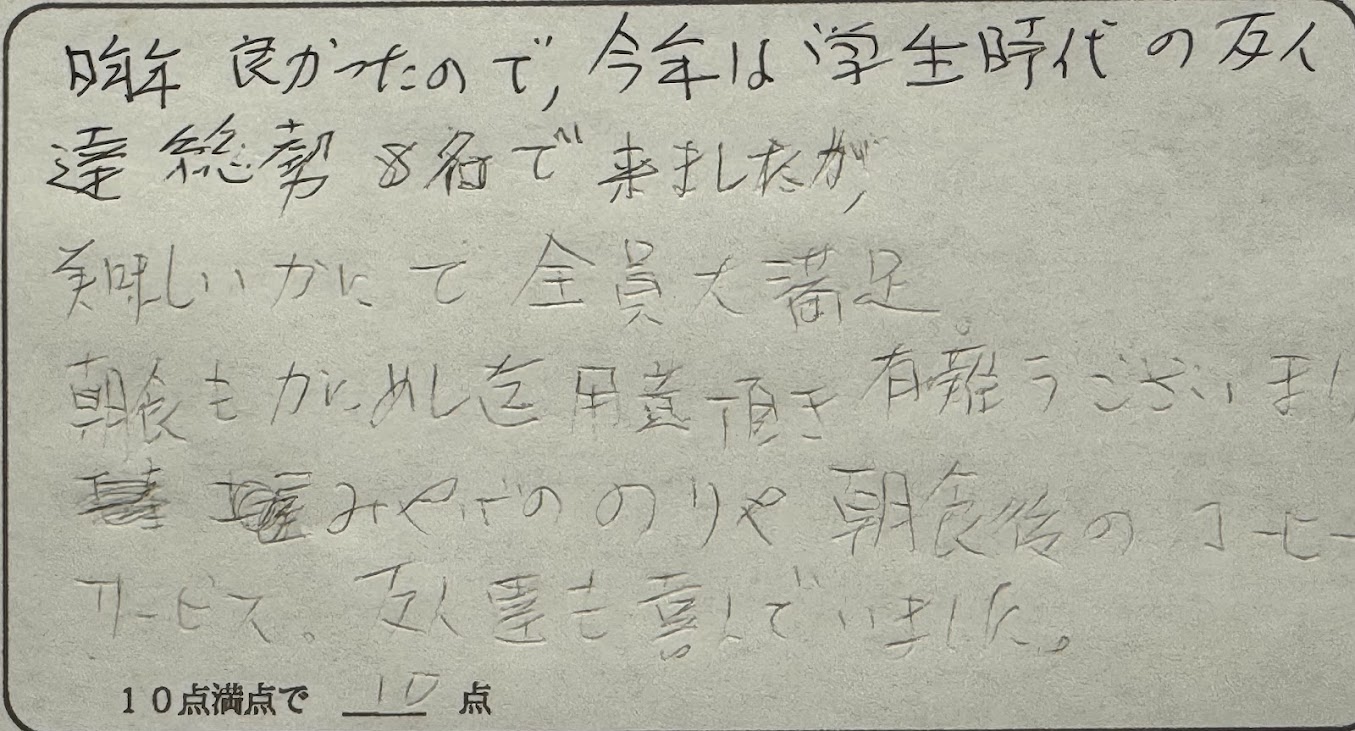 昨年良かったので、今年は学生時代の友人
達総勢8名で来ましたが、
美味しいかにで全員大満足。
朝食もかにめし迄用意頂き有難うございまし
みやげののりや朝食后のコーヒー
サービス。友人達も喜んでいました。
10点満点で 10 点